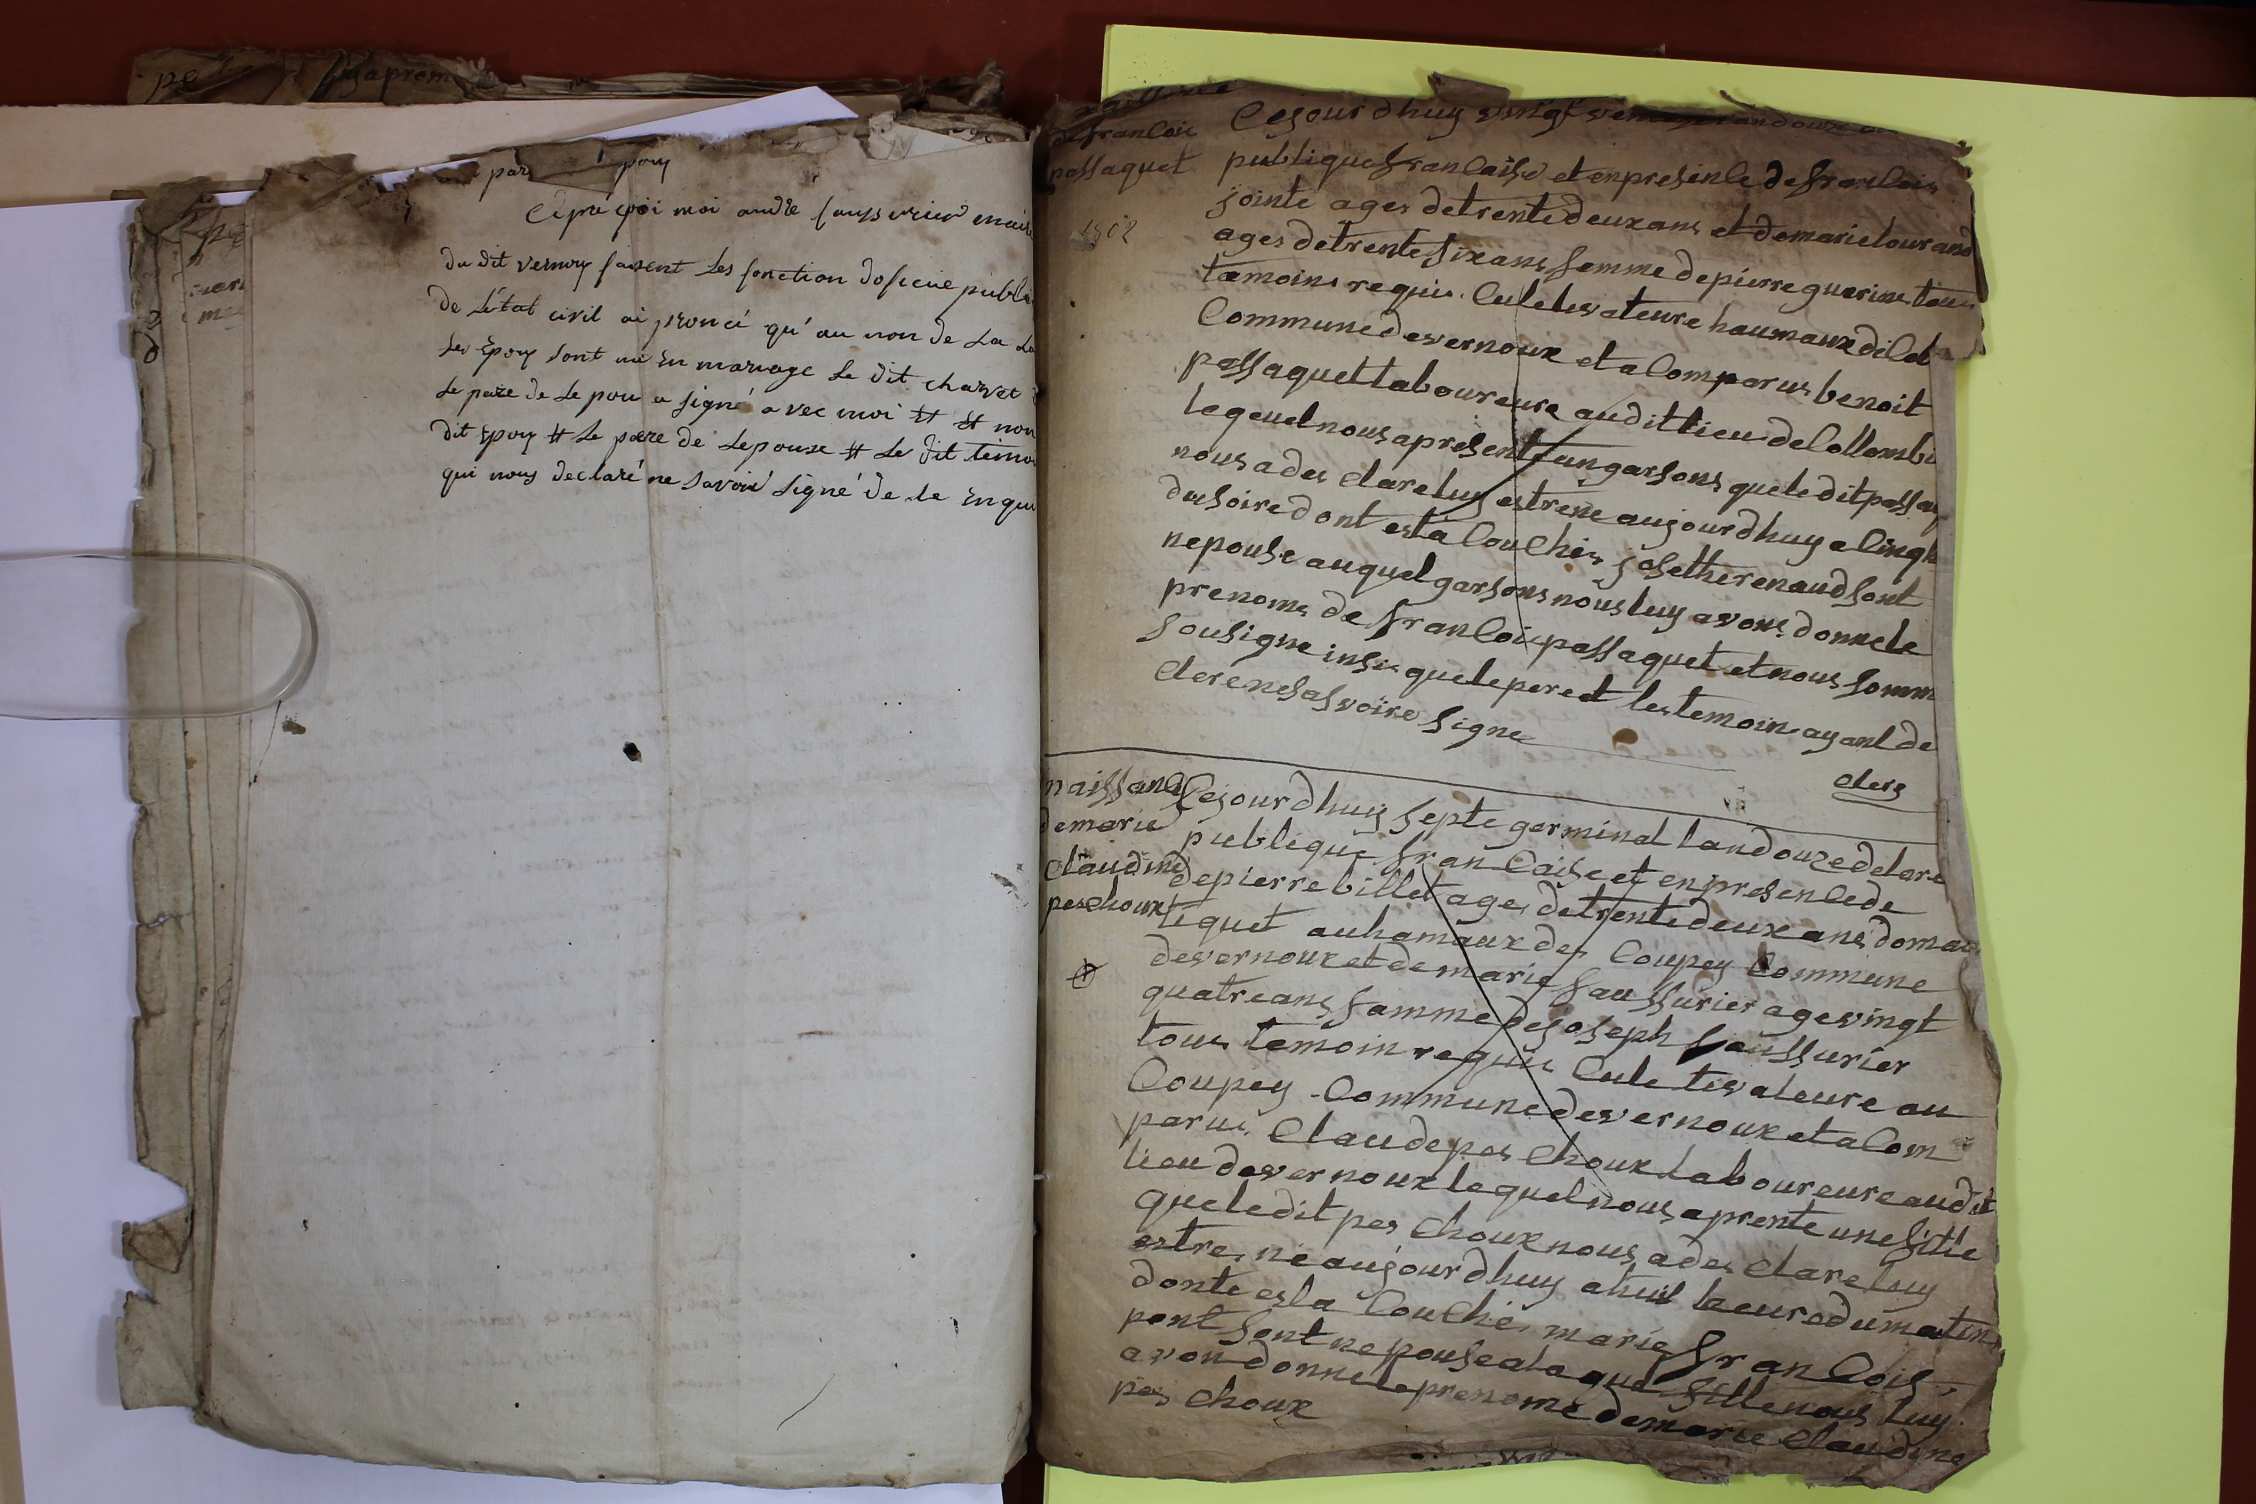 par pouy
Epre qoi moi andré saussurier maire
du dit vernoy faisent Les fonction doficié public
de Létat civil ai prononcé qu'au non de La Loi
Les Epouy sont uni En mariage Le dit charvet
Le paire de Le poux a signé avec moi # # non
dit Epouy # Le paere de Lepouse # Les dit temoi
qui nous declaré ne savoir signé de le Enqui
de franCois
passaquet
1802
Cejour dhuy vingt ventose landouze
publique franCaise et en presenCe de franCois
jointe ages detrente deux ans et demarie lourand
ages detrente six ans femme depierre guerin tous
tæmoins requis Culetivateure haumaux dilet
Commune desvernoux et a Comparus benoit
passaquet laboureure audit lieu de Collombi
lequeul nous apresente un garsons que le dit passaq
nous a des Clare luy estre ne aujourdhuy a Cinq h
du soire dont esta CouChes josethe renaud sont
nepouse auquel garsons nous luy avons donne le
prenoms de franCois passaquet et nous somm
sousigne insi que le pere et les temoin ayant de
Clere ne sasvoire signe
Clere
naissanCe
de marie
Claudine
peschoux
Cejourdhuy septe germinal landouze delare
publique franCaise et en presenCe de
depierre billet age detrente deux ans doma
tiquet au hamaux des Coupey Commune
desvernoux et de marie saussurier age vingt
quatre ans famme de joseph saussurier
tous temoin requis Culetivateure au
Coupey Commune desvernoux et a Com
parus Claude pes Choux laboureure audit
lieu desvernoux lequel nous a prente une fille
que le dit pes Choux nous a des Clare luy
estre ne aujourdhuy a huit heure du matin
donte esta CouChe marie franCois
pont sont nepouse a la quel fille nous luy
avon donne le prenome de marie Claudine
pes Choux